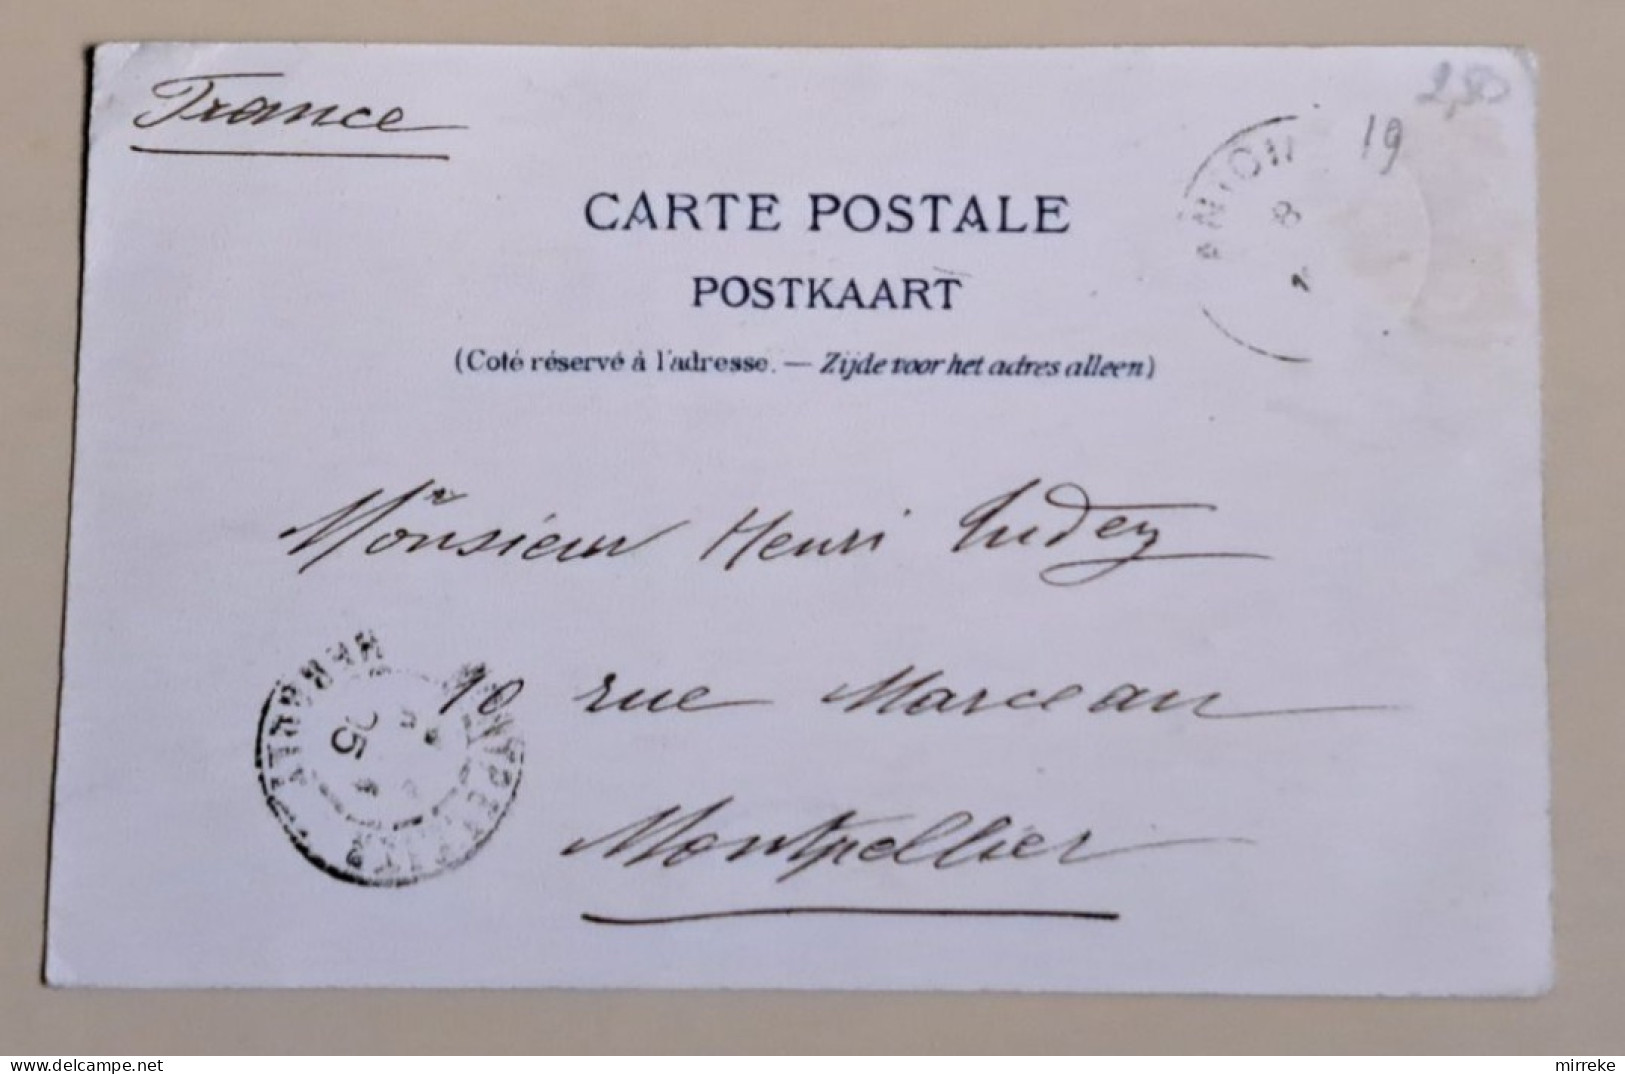 France
2,50
19
CARTE POSTALE
POSTKAART
(Coté réservé à l'adresse. — Zijde voor het adres alleen)
8
Monsieur Henri
10 rue Marceau
Montpellier
05
mirreke